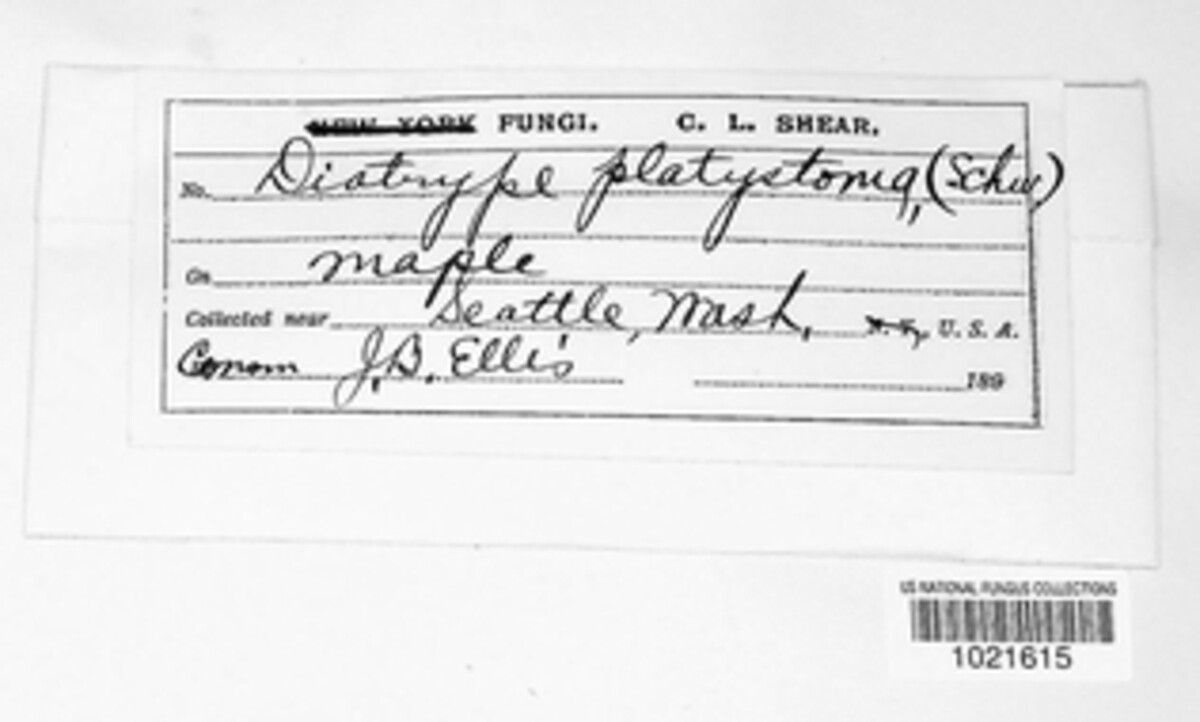 NEW YORK FUNGI. C. L. SHEAR.
No. Diatrype platystoma, (Schw)
On maple
Collected near Seattle, Wash, N. Y., U. S. A.
Comm J. B. Ellis 189
US NATIONAL FUNGUS COLLECTIONS
1021615